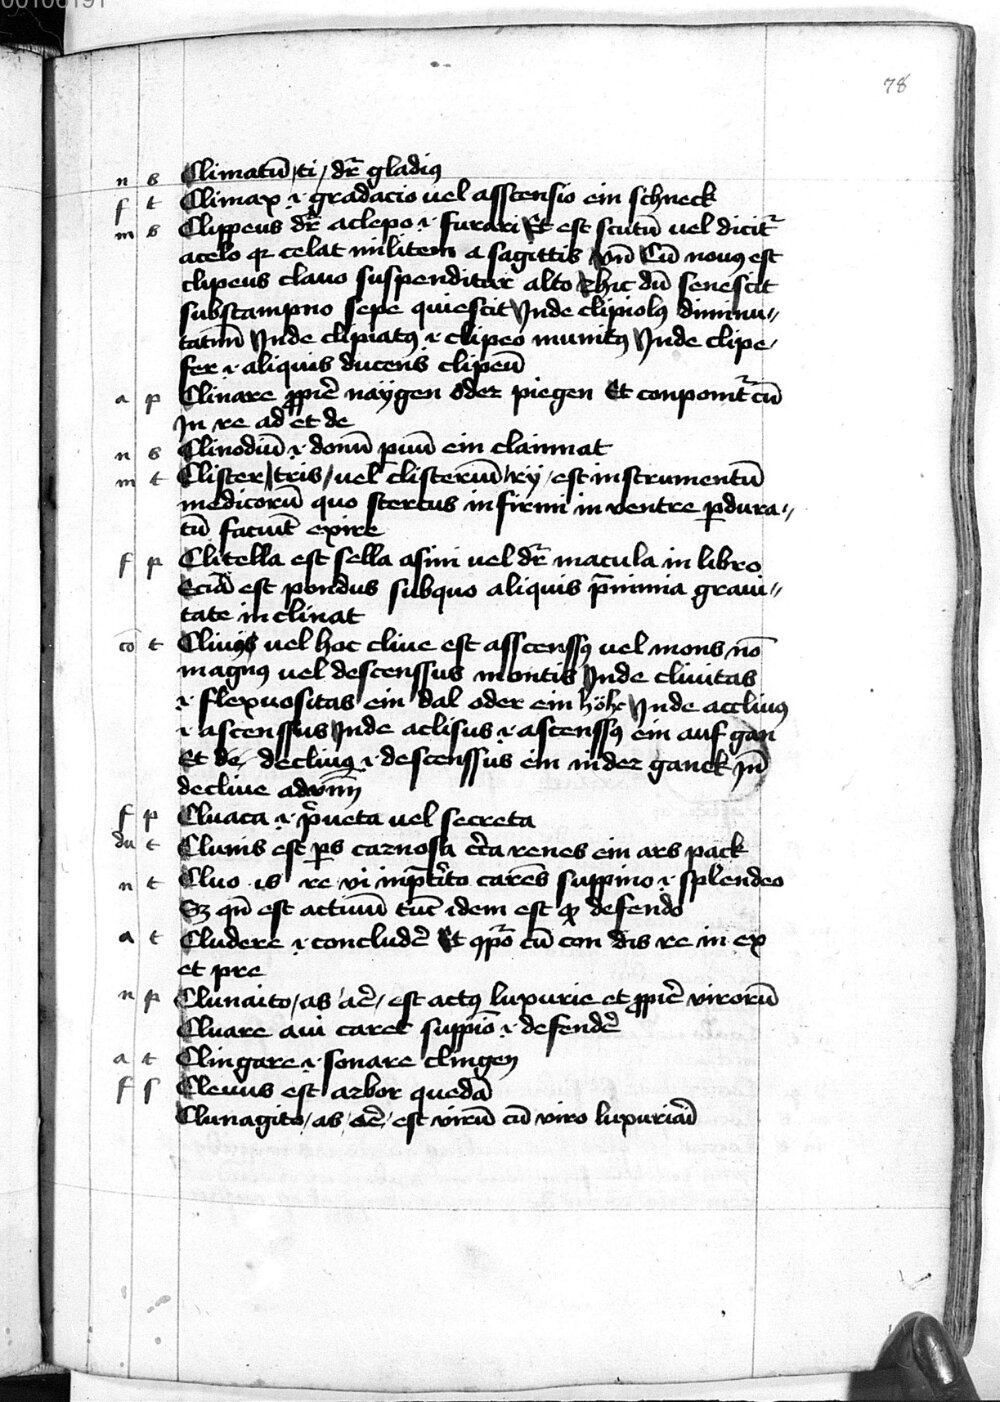 00106191
78
n s Climatū / ti / dr̄ gladiꝰ
f t Climax .i. gradacio uel asscensio ein schneck
m s Clippeus dr̄ a clepo .i. furari Et est scutū uel dicit̄
a celo qr celat militem a sagittis vn̄ Cū nouꝰ est
clipeus clauo suspenditur alto Et hic dū senescit
sub stampno sepe quiescit Inde clipiolꝰ diminu〃
tatiuū Inde clipiatꝰ .i. clipeo munitꝰ Inde clipe,
fer .i. aliquis ducens clipeū
a p Clinare ꝓpiē naÿgen oder piegen Et componit̄ cū
In re ad et de
n s Clinodiū .i. donū piuū ein clainnat
m t Clister / tris / uel clisteriū / rij / est instrumentū
medicorū quo stercus infirmi in ventre ꝑdura〃
tū faciūt exire
f p Clitella est sella asini uel dr̄ macula in libro
Eciā est pondus sub quo aliquis p̄ nimia graui〃
tate inclinat
cō t Cliuis uel hoc cliue est asscenssꝰ uel mons nō
magnꝰ uel descenssus montis Inde cliuitas
.i. flexuositas ein dal oder ein höhe Inde accliuꝰ
.i. ascenssus Inde aclisus .i. ascenssꝰ ein auf gan
Et de decliuꝰ .i. descenssus ein nider ganck In̄
decliue
f p Cluaca .i. p̄ueta uel secreta
du t Clunis est ꝑs carnosa cc̄a renes ein ars pack
n t Cluo is re vi inp̄tito carēs suppino .i. splendeo
Sꝫ qn̄ est actiuū tūc idem est qd defendo
a t Cludere .i. concludē Et ꝯpō cū con dis re in ex
et pre
n p Clunaito / as / aē / est actꝰ luxurie et ꝓpiē virorū
Cluare aui caret suppiō .i. defendē
a t Clingare .i. sonare clingen
f s Cleuus est arbor quedā
Clunagito / as / aē / est virū cū viro luxuriaī